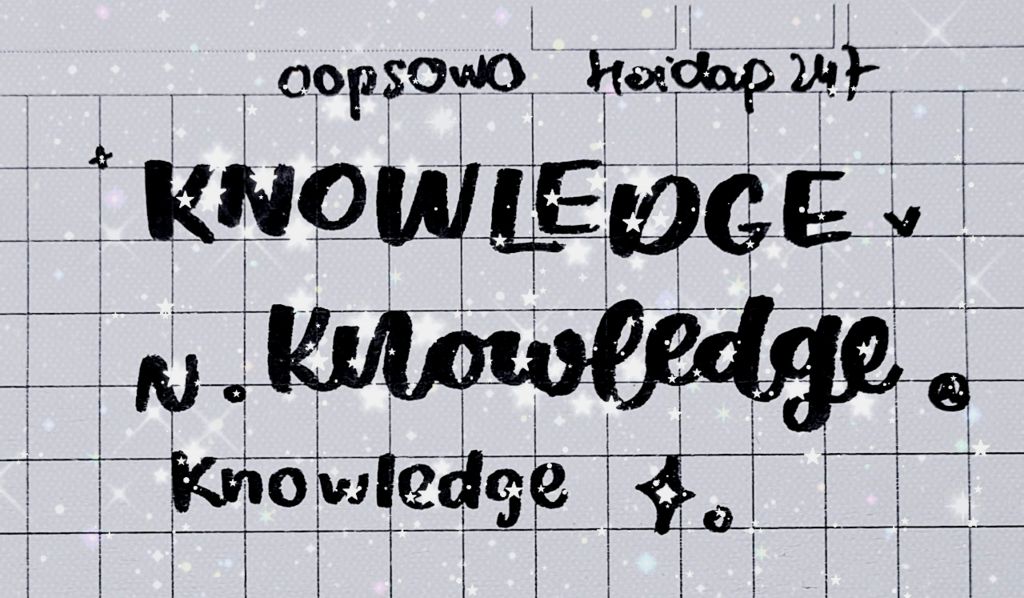 oopsOwO Hoidap 247
KNOWLEDGE
N. Knowledge
Knowledge